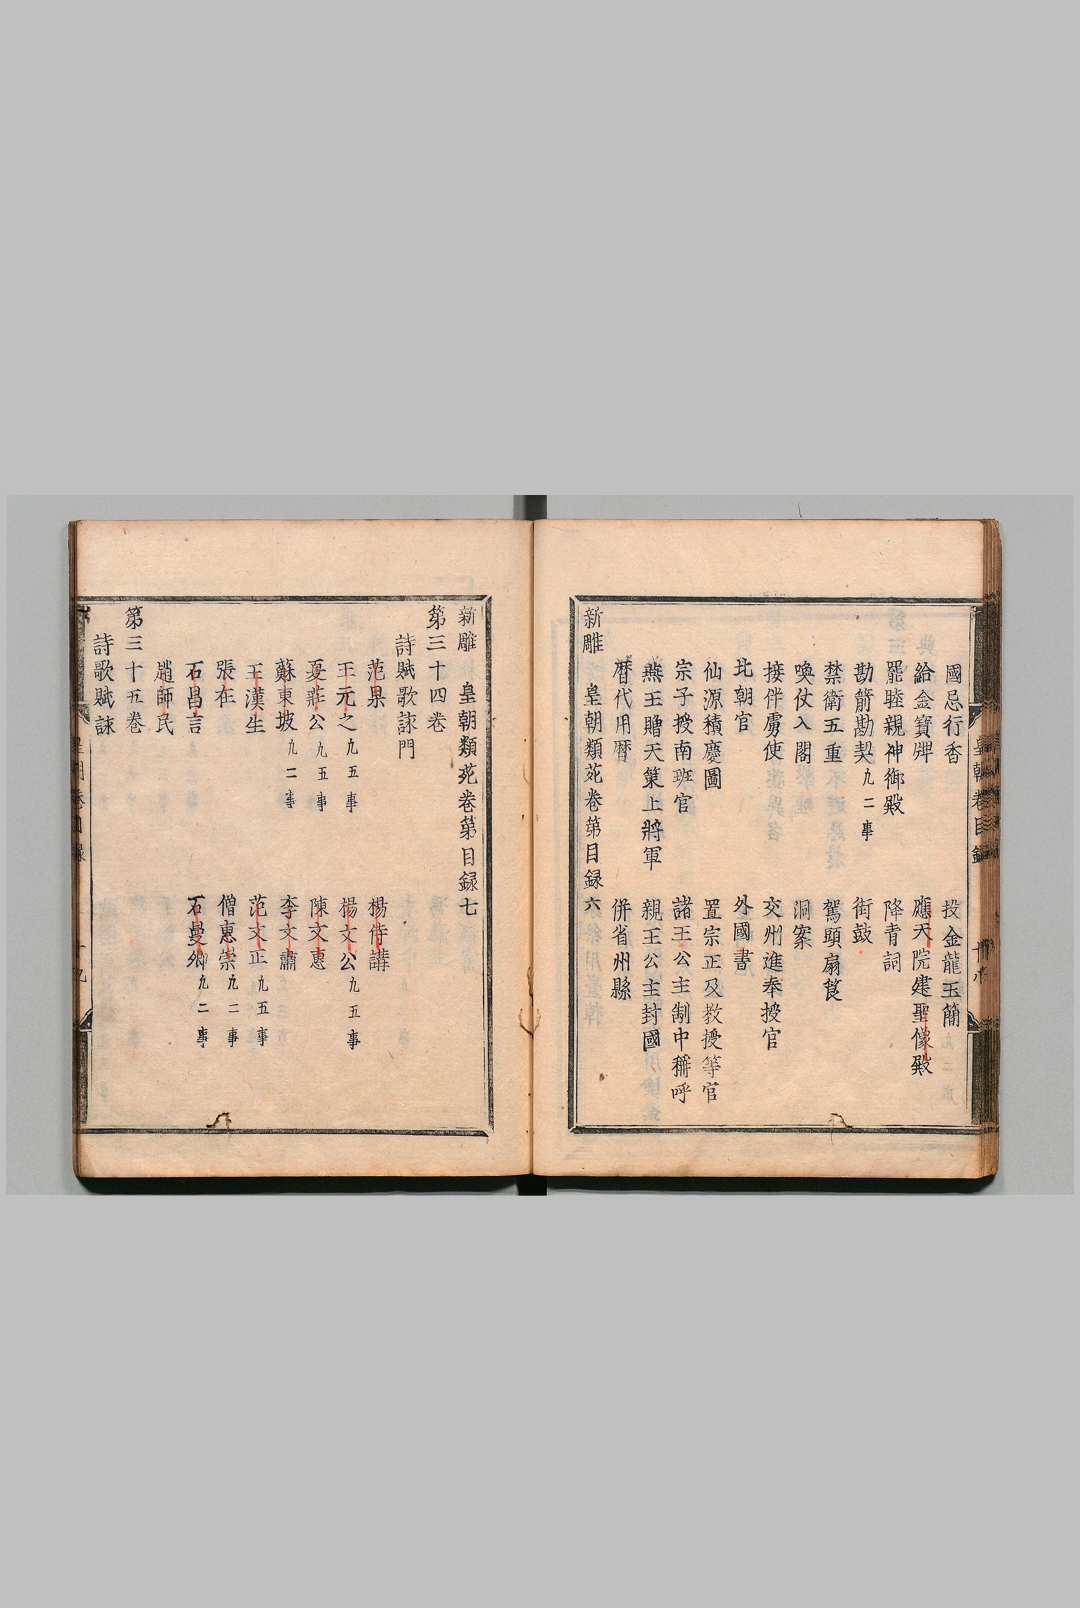 國忌行香　投金龍玉簡
給金寶牌　應天院建聖像殿
罷睦親神御殿　降青詞
勘箭勘契九二事　街鼓
禁衛五重　駕頭扇筤
喚仗入閤　洞案
接伴虜使　交州進奉授官
北朝官　外國書
仙源積慶圖　置宗正及教授等官
宗子授南班官　諸王公主制中稱呼
燕王贈天策上將軍　親王公主封國
曆代用曆　併省州縣
新雕　皇朝類苑卷第目録六
新雕　皇朝類苑卷第目録七
第三十四卷
詩賦歌詠門
范杲　楊侍講
王元之九五事　楊文公九五事
夏莊公九五事　陳文惠
蘇東坡九二事　李文肅
王漢生　范文正九五事
張在　僧惠崇九二事
石昌言　石曼卿九二事
趙師民
第三十五卷
詩歌賦詠